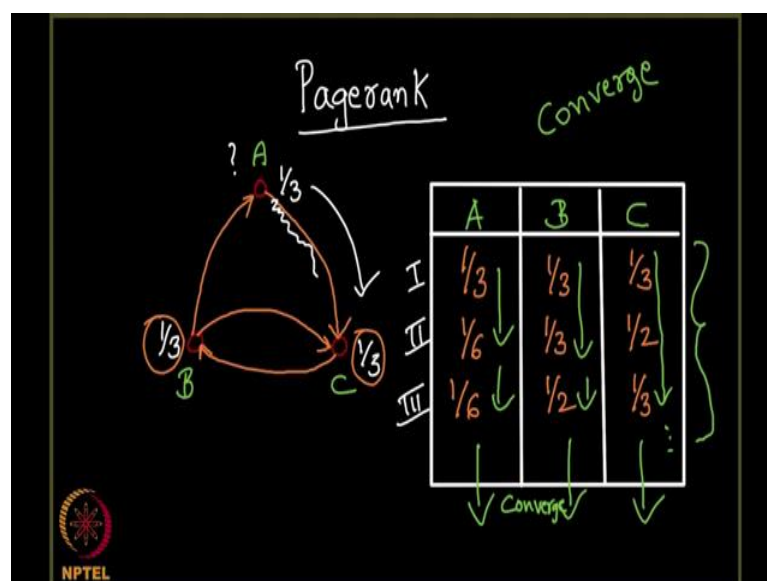 Pagerank
Converge
? A
1/3
1/3
B
1/3
C
A B C
I 1/3 1/3 1/3
II 1/6 1/3 1/2
III 1/6 1/2 1/3
⋮
Converge
NPTEL